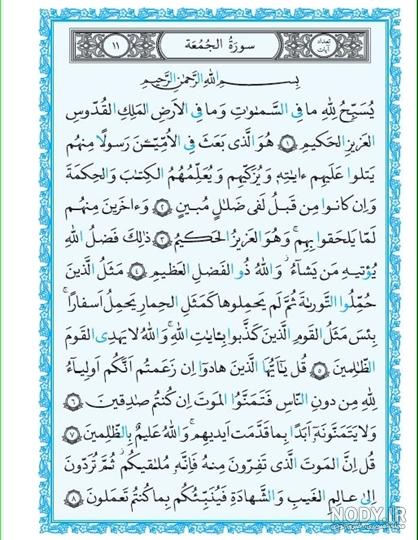 تعداد آیات سورَةُ الجُمُعَة ١١
بِسمِ اللهِ الرَّحمٰنِ الرَّحیمِ
یُسَبِّحُ لِلّٰهِ ما فِی السَّمٰوٰتِ وَما فِی الاَرضِ المَلِكِ القُدّوسِ
العَزیزِ الحَكیمِ ﴿١﴾ هُوَ الَّذی بَعَثَ فِی الاُمِّیّـۧنَ رَسولًا مِنهُم
یَتلوا عَلَیهِم ءایٰتِهٖ وَیُزَكّیهِم وَیُعَلِّمُهُمُ الكِتٰبَ وَالحِكمَةَ
وَاِن كانوا مِن قَبلُ لَفی ضَلٰلٍ مُبینٍ ﴿٢﴾ وَءاخَرینَ مِنهُم
لَمّا یَلحَقوا بِهِم ۚ وَهُوَ العَزیزُ الحَكیمُ ﴿٣﴾ ذٰلِكَ فَضلُ اللهِ
یُؤتیهِ مَن یَشاءُ ۚ وَاللهُ ذُو الفَضلِ العَظیمِ ﴿٤﴾ مَثَلُ الَّذینَ
حُمِّلُوا التَّورىٰةَ ثُمَّ لَم یَحمِلوها كَمَثَلِ الحِمارِ یَحمِلُ اَسفارًا ۚ
بِئسَ مَثَلُ القَومِ الَّذینَ كَذَّبوا بِـٔایٰتِ اللهِ ۚ وَاللهُ لا یَهدِی القَومَ
الظّٰلِمینَ ﴿٥﴾ قُل یٰاَیُّهَا الَّذینَ هادوا اِن زَعَمتُم اَنَّكُم اَولِیاءُ
لِلّٰهِ مِن دونِ النّاسِ فَتَمَنَّوُا المَوتَ اِن كُنتُم صٰدِقینَ ﴿٦﴾
وَلا یَتَمَنَّونَهٗ اَبَدًا بِما قَدَّمَت اَیدیهِم ۚ وَاللهُ عَلیمٌ بِالظّٰلِمینَ ﴿٧﴾
قُل اِنَّ المَوتَ الَّذی تَفِرّونَ مِنهُ فَاِنَّهٗ مُلٰقیكُم ۖ ثُمَّ تُرَدّونَ
اِلیٰ عالِمِ الغَیبِ وَالشَّهادَةِ فَیُنَبِّئُكُم بِما كُنتُم تَعمَلونَ ﴿٨﴾
NODY.IR